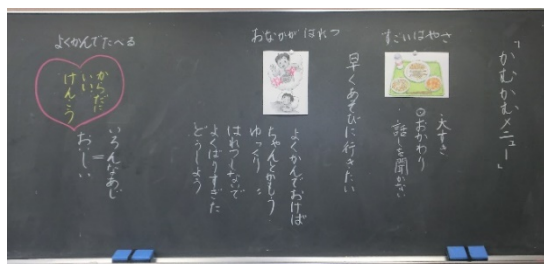 「かむかむメニュー」
すごいはやさ
大すき
◎おかわり
話しを聞かない
おなかがはれつ
早くあそびに行きたい
よくかんでおけば
ちゃんとかもう
ゆっくり 〃
はれつしないで
よくばりすぎた
どうしよう
よくかんでたべる
からだに
いい
けんこう
いろんなあじ
=
おいしい